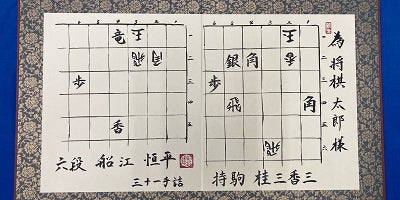 為将棋太郎様
王
銀 角 香
歩
飛 角
飛
持駒 桂三香三
竜 王
飛 角
歩
香
六段 船江 恒平
三十一手詰